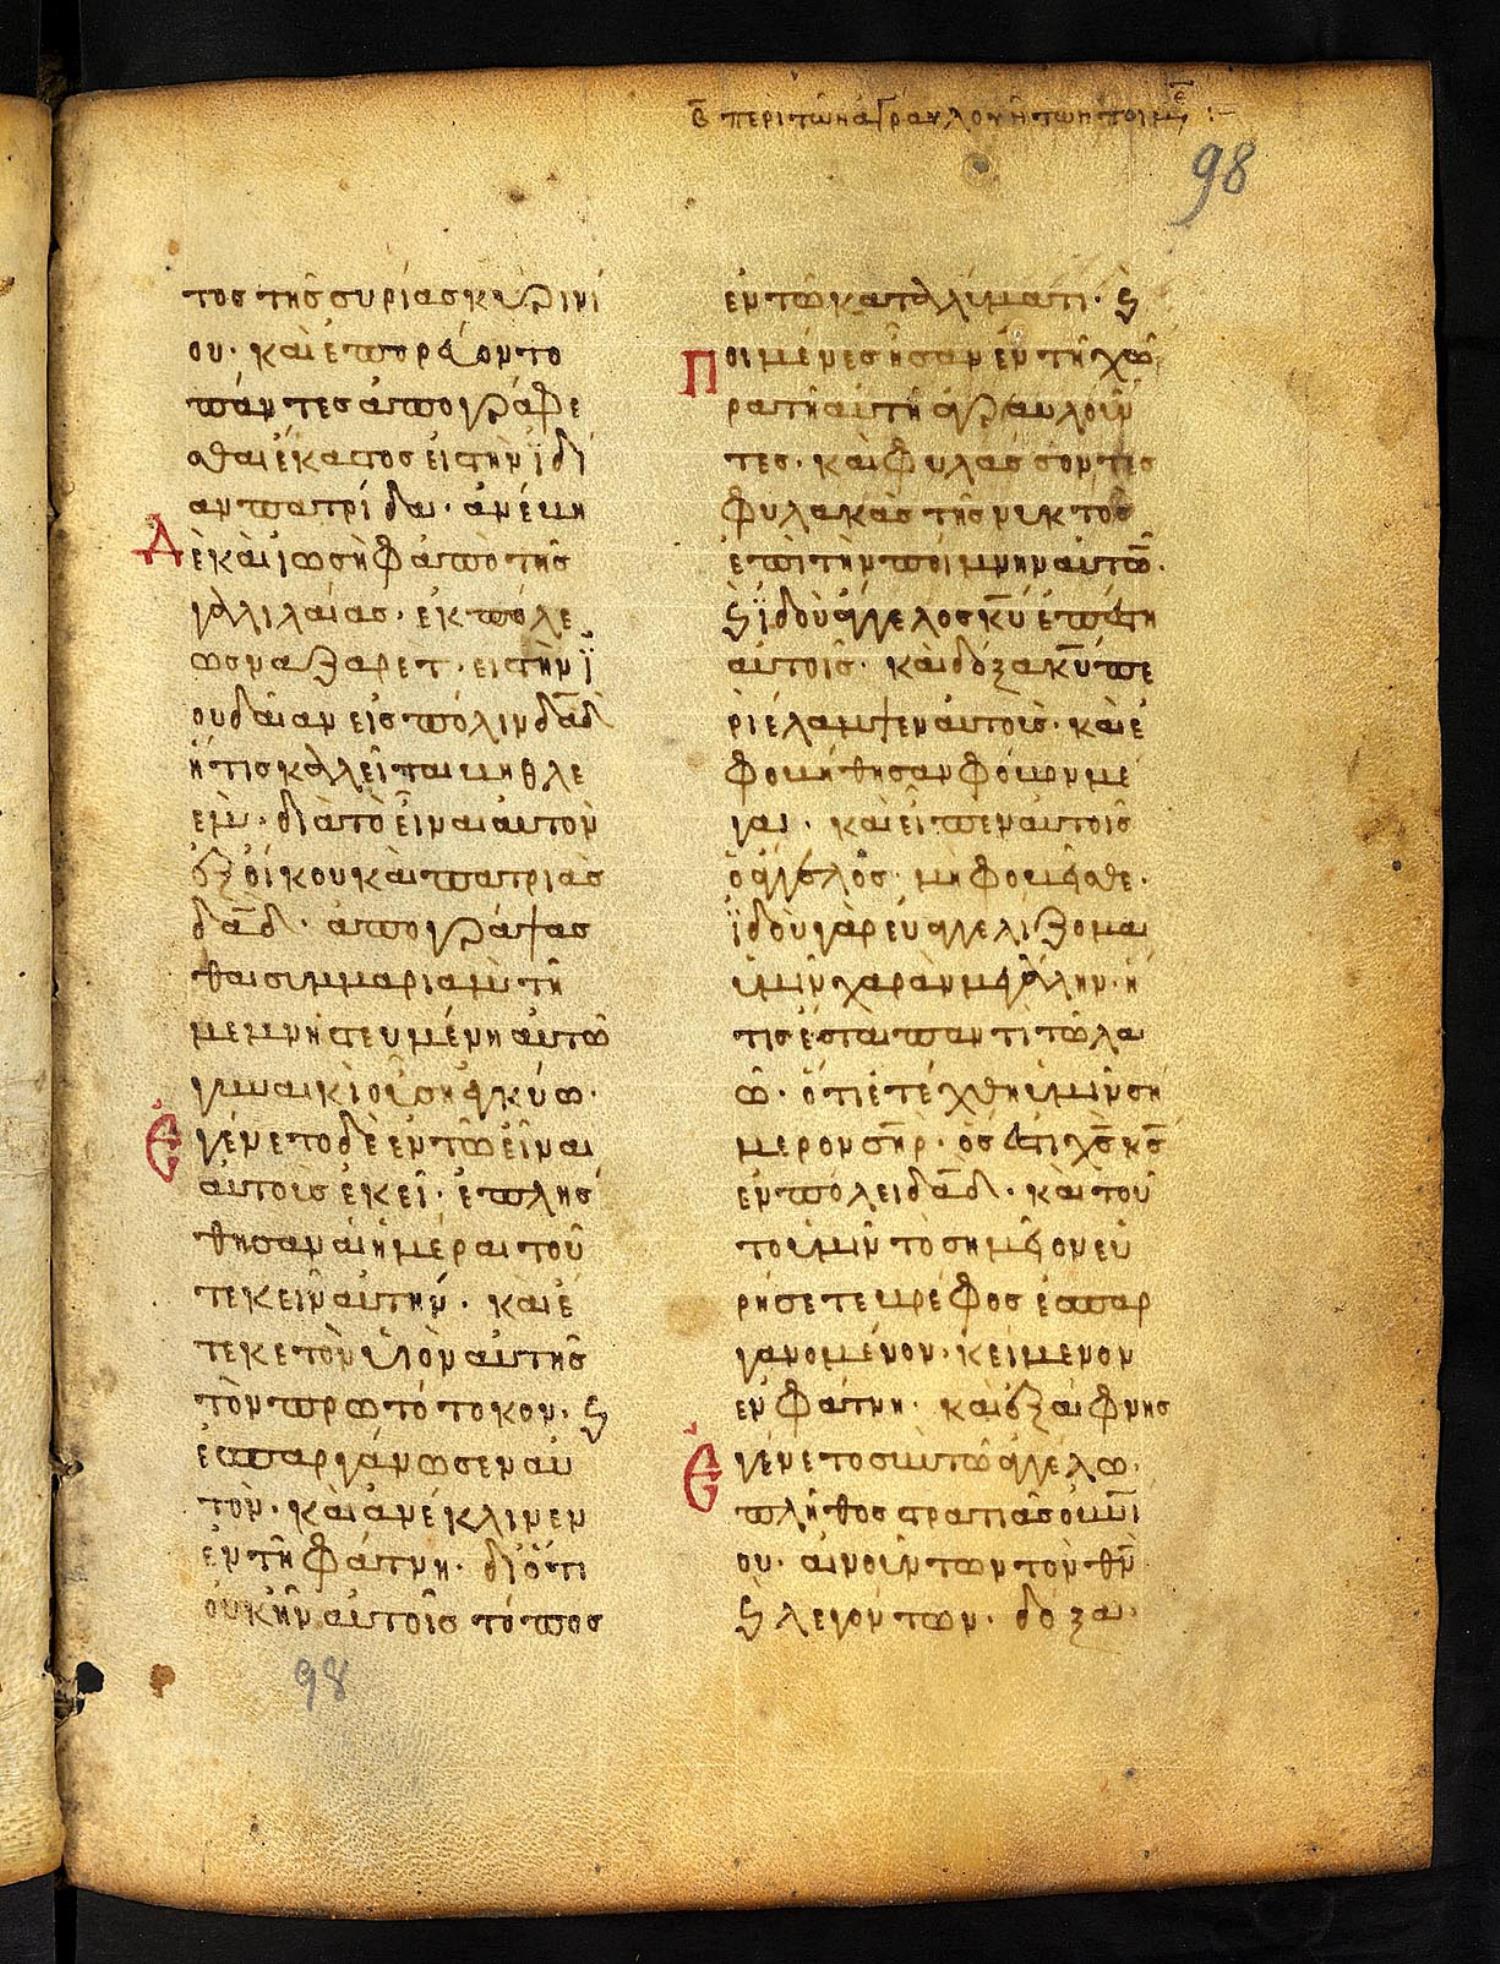 β̅ περὶ τῶν ἀγραυλούντων ποιμε :–
98
τος τῆς συρίας κυρινί
ου· καὶ ἐπορεύοντο
πάντες ἀπογράφε
σθαι ἕκαστος εἰς τὴν ἰδί
αν πατρίδα· ἀνέβη
Δὲ καὶ ἰωσὴφ ἀπὸ τῆς
γαλιλαίας· ἐκ πόλε
ως ναζαρετ· εἰς τὴν ϊ
ουδαίαν εἰς πόλιν δα̅δ
ἥτις καλεῖται βηθλε
εμ· διὰ τὸ εἶναι αὐτὸν
ἐξ οἴκου καὶ πατριὰς
δα̅δ· ἀπογράψασ
θαι σὺν μαριὰμ τῆ
μεμνηστευμένη αὐτῶ
γυναικὶ οὔση ἐγκύω·
Ἐγένετο δὲ ἐν τῶ εἶναι
αὐτοὺς ἐκεῖ· ἐπλήσ
θησαν αἱ ἡμέραι τοῦ
τεκεῖν αὐτήν· καὶ ἔ
τεκε τὸν υἱὸν αὐτῆς
τὸν πρωτότοκον· ϗ
ἐσπαργάνωσεν αὐ
τὸν· καὶ ἀνέκλινεν
ἐν τῆ φάτνη· διότι
οὐκ ἦν αὐτοῖς τόπος
ἐν τῶ καταλύματι· ϗ
Ποιμένες ἦσαν ἐν τῆ χώ
ρα τῆ αὐτῆ ἀγραυλοῦν
τες· καὶ φυλάσσοντες
φυλακὰς τῆς νυκτὸς
ἐπὶ τὴν ποίμνην αὐτῶ̅·
ϗ ϊδοὺ ἄγγελος κ̅υ ἐπέστη
αὐτοῖς· καὶ δόξα κ̅υ πε
ριέλαμψεν αὐτοὺς· καὶ ἐ
φοβήθησαν φόβον μέ
γαν· καὶ εἶπεν αὐτοῖς
ὁ ἄγγελος· μὴ φοβεῖσθε·
ϊδοὺ γὰρ εὐαγγελίζομαι
ὑμῖν χαρὰν μεγάλην· ἥ
τις ἔσται παντὶ τῶ λα
ῶ· ὅτι ἐτέχθη ὑμῖν ση
μερον σ̅ηρ· ὅς ἐστι χ̅ς κ̅ς
ἐν πόλει δα̅δ· καὶ τοῦ
το ὑμῖν τὸ σημεῖον εὑ
ρήσετε βρέφος ἐσπαρ
γανομένον· κείμενον
ἐν φάτνη· καὶ ἐξαίφνης
Ἐγένετο σὺν τῶ ἀγγέλω·
πλῆθος στρατιᾶς οὐν̅ι
ου· αἰνούντων τὸν θ̅ν
ϗ λεγόντων· δόξα·
98